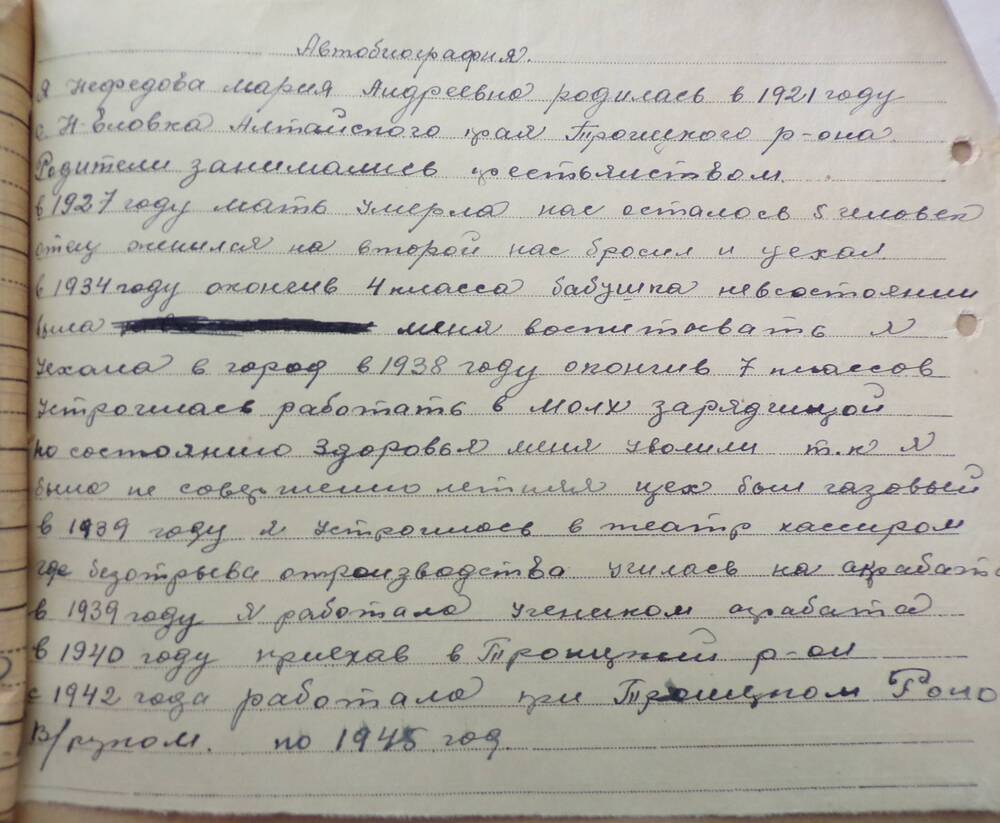 Автобиография.
Я Нефедова Мария Андреевна родилась в 1921 году
с. Н-Еловка Алтайского края Троицкого р-она.
Родители занимались крестьянством.
в 1927 году мать умерла нас осталось 5 человек
отец женился на второй нас бросил и уехал.
в 1934 году окончив 4 класса бабушка невсостоянии
была меня воспитывать я
уехала в город в 1938 году окончив 7 классов
устроилась работать в молх зарядчицой
по состоянию здоровья меня уволили т.к я
была не совершенно летняя цех был газовый
в 1939 году я устроилась в театр кассиром
где безотрыва отроизводства училась на акрабата
в 1939 году я работала учеником акрабата
в 1940 году приехав в Троицкий р-он
с 1942 года работала при Троицком
по 1945 год.